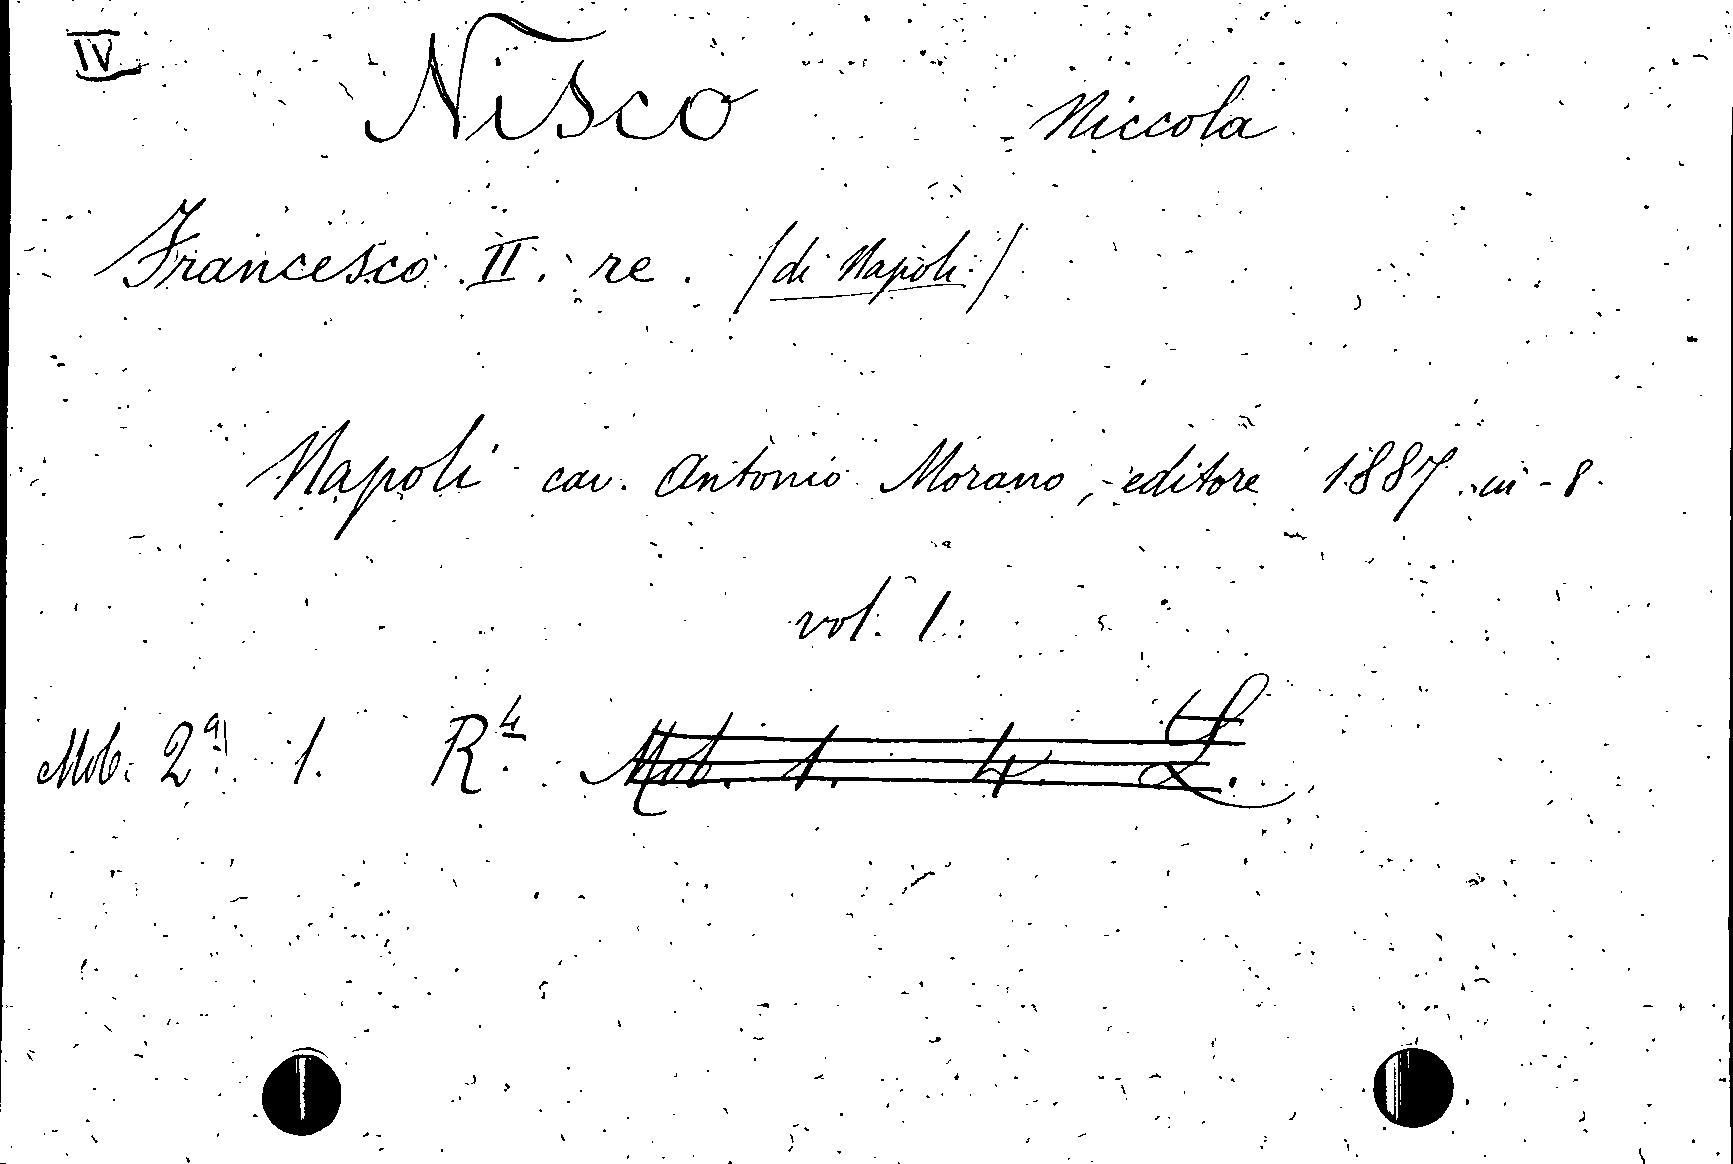 IV
Nisco Niccola
Francesco II. re. (di Napoli.)
Napoli cav. Antonio Morano, editore 1887. in-8.
vol. 1.
Mob. 2ª. 1. R.4 Mob. 1. 4. L.